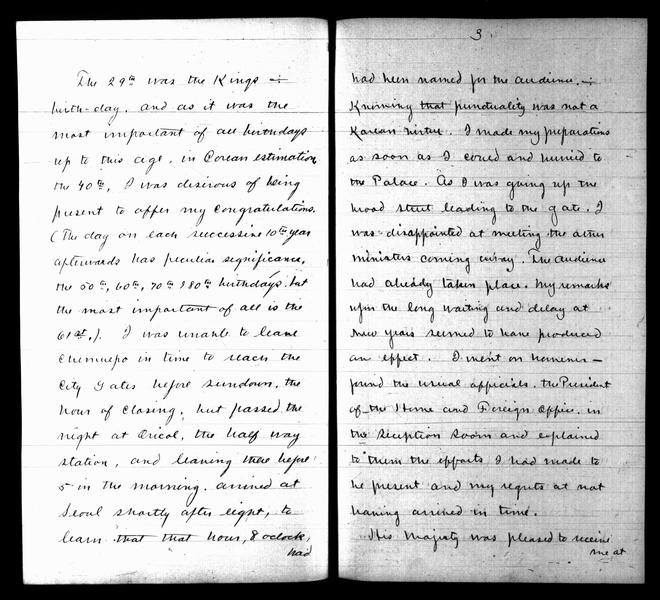 The 29th was the Kings —
birth-day. and as it was the
most important of all birthdays
up to this age, in Corean estimation,
the 40th, I was desirous of being
present to offer my congratulations.
(The day on each successive 10th year
afterwards has peculiar significance,
the 50th, 60th, 70th & 80th birthdays but
the most important of all is the
61st.). I was unable to leave
Chemulpo in time to reach the
City Gates before sundown, the
hour of closing, but passed the
night at Oricol, the half way
station, and leaving there before
5 in the morning. arrived at
Seoul shortly after eight, to
learn that that hour, 8 oclock,
had
3
had been named for the audience. —
Knowing that punctuality was not a
Korean virtue. I made my preparations
as soon as I could and hurried to
the Palace. As I was going up the
broad street leading to the gate. I
was disappointed at meeting the other
ministers coming away. The audience
had already taken place. My remarks
upon the long waiting and delay at
New Years seemed to have produced
an effect. I went on however —
found the usual officials. the President
of the Home and Foreign Office. in
the Reception Room and explained
to them the efforts I had made to
be present and my regrets at not
having arrived in time.
His Majesty was pleased to receive
me at